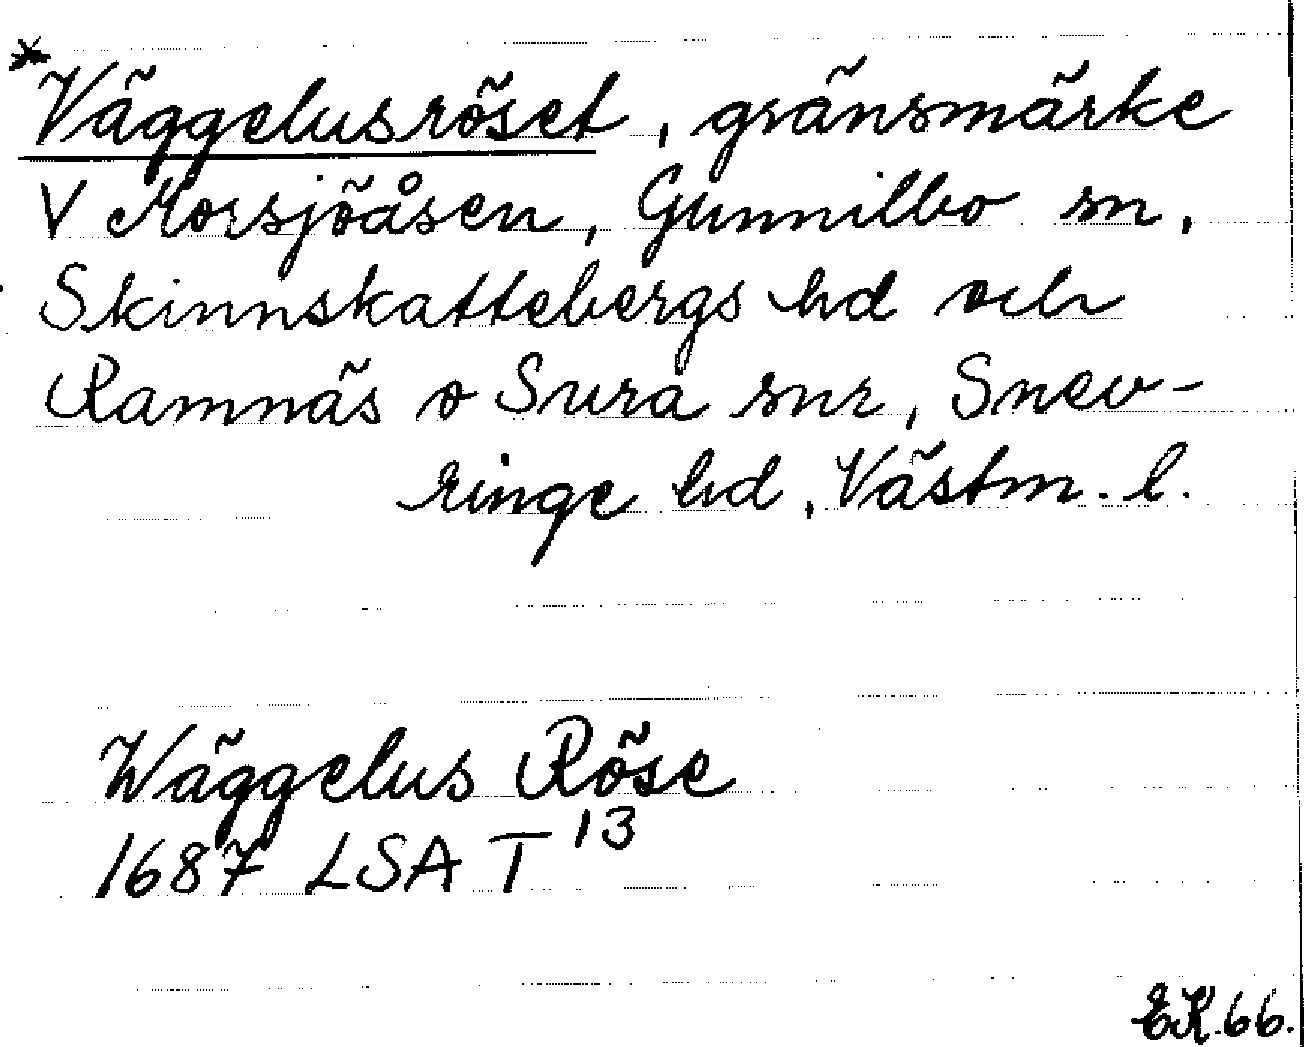 *Väggelusröset, gränsmärke
V Morsjöåsen, Gunnilbo sn,
Skinnskattebergs hd och
Ramnäs o Sura snr, Snev-
ringe hd, Västm. l.
Wäggelus Röse
1687 LSA T 13
EK.66.